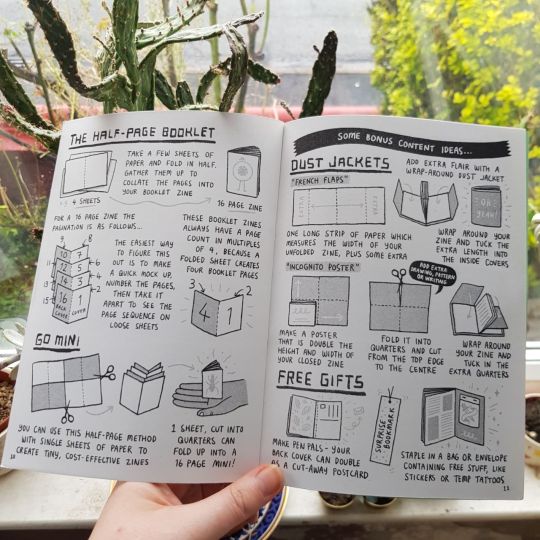 THE HALF-PAGE BOOKLET
TAKE A FEW SHEETS OF
PAPER AND FOLD IN HALF.
GATHER THEM UP TO
COLLATE THE PAGES INTO
YOUR BOOKLET ZINE
4 SHEETS
16 PAGE ZINE
FOR A 16 PAGE ZINE THE
PAGINATION IS AS FOLLOWS...
THE EASIEST WAY
TO FIGURE THIS
OUT IS TO MAKE
A QUICK MOCK UP,
NUMBER THE PAGES,
THEN TAKE IT
APART TO SEE THE
PAGE SEQUENCE ON
LOOSE SHEETS
10 7
12 5
14 3
16 1
BACK COVER
COVER
THESE BOOKLET ZINES
ALWAYS HAVE A PAGE
COUNT IN MULTIPLES
OF 4, BECAUSE A
FOLDED SHEET CREATES
FOUR BOOKLET PAGES
3 2
4 1
GO MINI
YOU CAN USE THIS HALF-PAGE METHOD
WITH SINGLE SHEETS OF PAPER TO
CREATE TINY, COST-EFFECTIVE ZINES
1 SHEET, CUT INTO
QUARTERS CAN
FOLD UP INTO A
16 PAGE MINI!
SOME BONUS CONTENT IDEAS...
DUST JACKETS
"FRENCH FLAPS"
ADD EXTRA FLAIR WITH A
WRAP-AROUND DUST JACKET
OH YEAH!
ONE LONG STRIP OF PAPER WHICH
MEASURES THE WIDTH OF YOUR
UNFOLDED ZINE, PLUS SOME EXTRA
WRAP AROUND YOUR
ZINE AND TUCK THE
EXTRA LENGTH INTO
THE INSIDE COVERS
"INCOGNITO POSTER"
ADD EXTRA
DRAWING, PATTERN
OR WRITING
MAKE A POSTER
THAT IS DOUBLE THE
HEIGHT AND WIDTH OF
YOUR CLOSED ZINE
FOLD IT INTO
QUARTERS AND CUT
FROM THE TOP EDGE
TO THE CENTRE
WRAP AROUND
YOUR ZINE AND
TUCK IN THE
EXTRA QUARTERS
FREE GIFTS
SURPRISE BOOKMARK
MAKE PEN PALS - YOUR
BACK COVER CAN DOUBLE
AS A CUT-AWAY POSTCARD
STAPLE IN A BAG OR ENVELOPE
CONTAINING FREE STUFF, LIKE
STICKERS OR TEMP TATTOOS